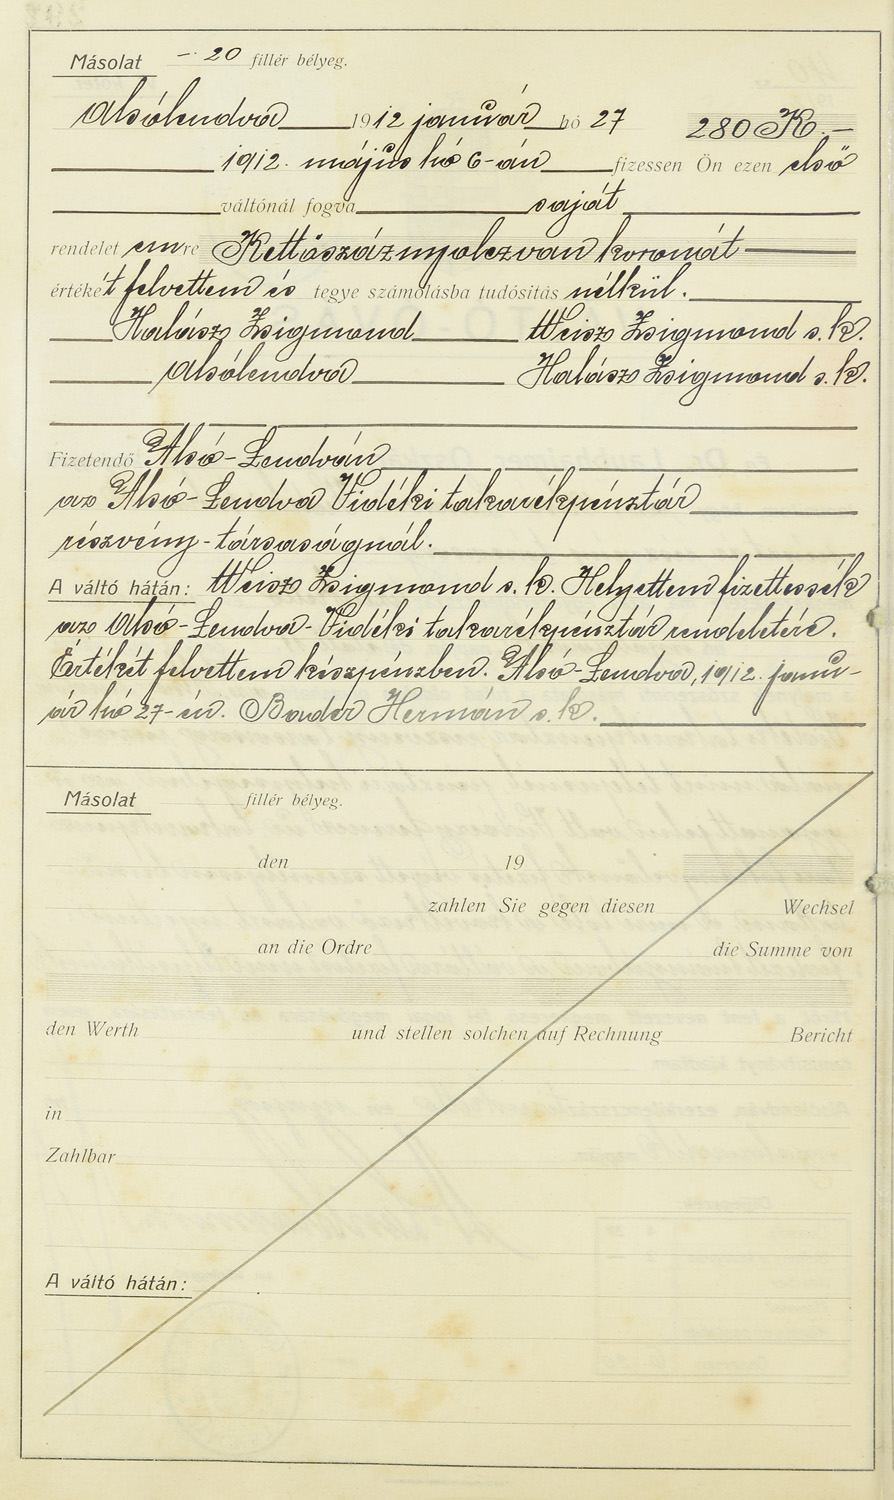 Másolat — 20 fillér bélyeg.
Alsólendva 1912 január hó 27 280 K. —
1912. május hó 6-án fizessen Ön ezen első
váltónál fogva saját
rendelet emre Kettőszáznyolczvan koronát
értékét felvettem és tegye számolásba tudósítás nélkül.
Halász Zsigmond Weisz Zsigmond s. k.
Alsólendva Halász Zsigmond s. k.
Fizetendő Alsó-Lendván
az Alsó-Lendva Vidéki takarékpénztár
részvény-társaságnál.
A váltó hátán: Weisz Zsigmond s. k. Helyettem fizettessék
az Alsó-Lendva-Vidéki takarékpénztár rendeletére.
Értékét felvettem készpénzben. Alsó-Lendva, 1912. janu-
ár hó 27-én. Bader Hermán s. k.
Másolat fillér bélyeg.
den 19
zahlen Sie gegen diesen Wechsel
an die Ordre die Summe von
den Werth und stellen solchen auf Rechnung Bericht
in
Zahlbar
A váltó hátán: